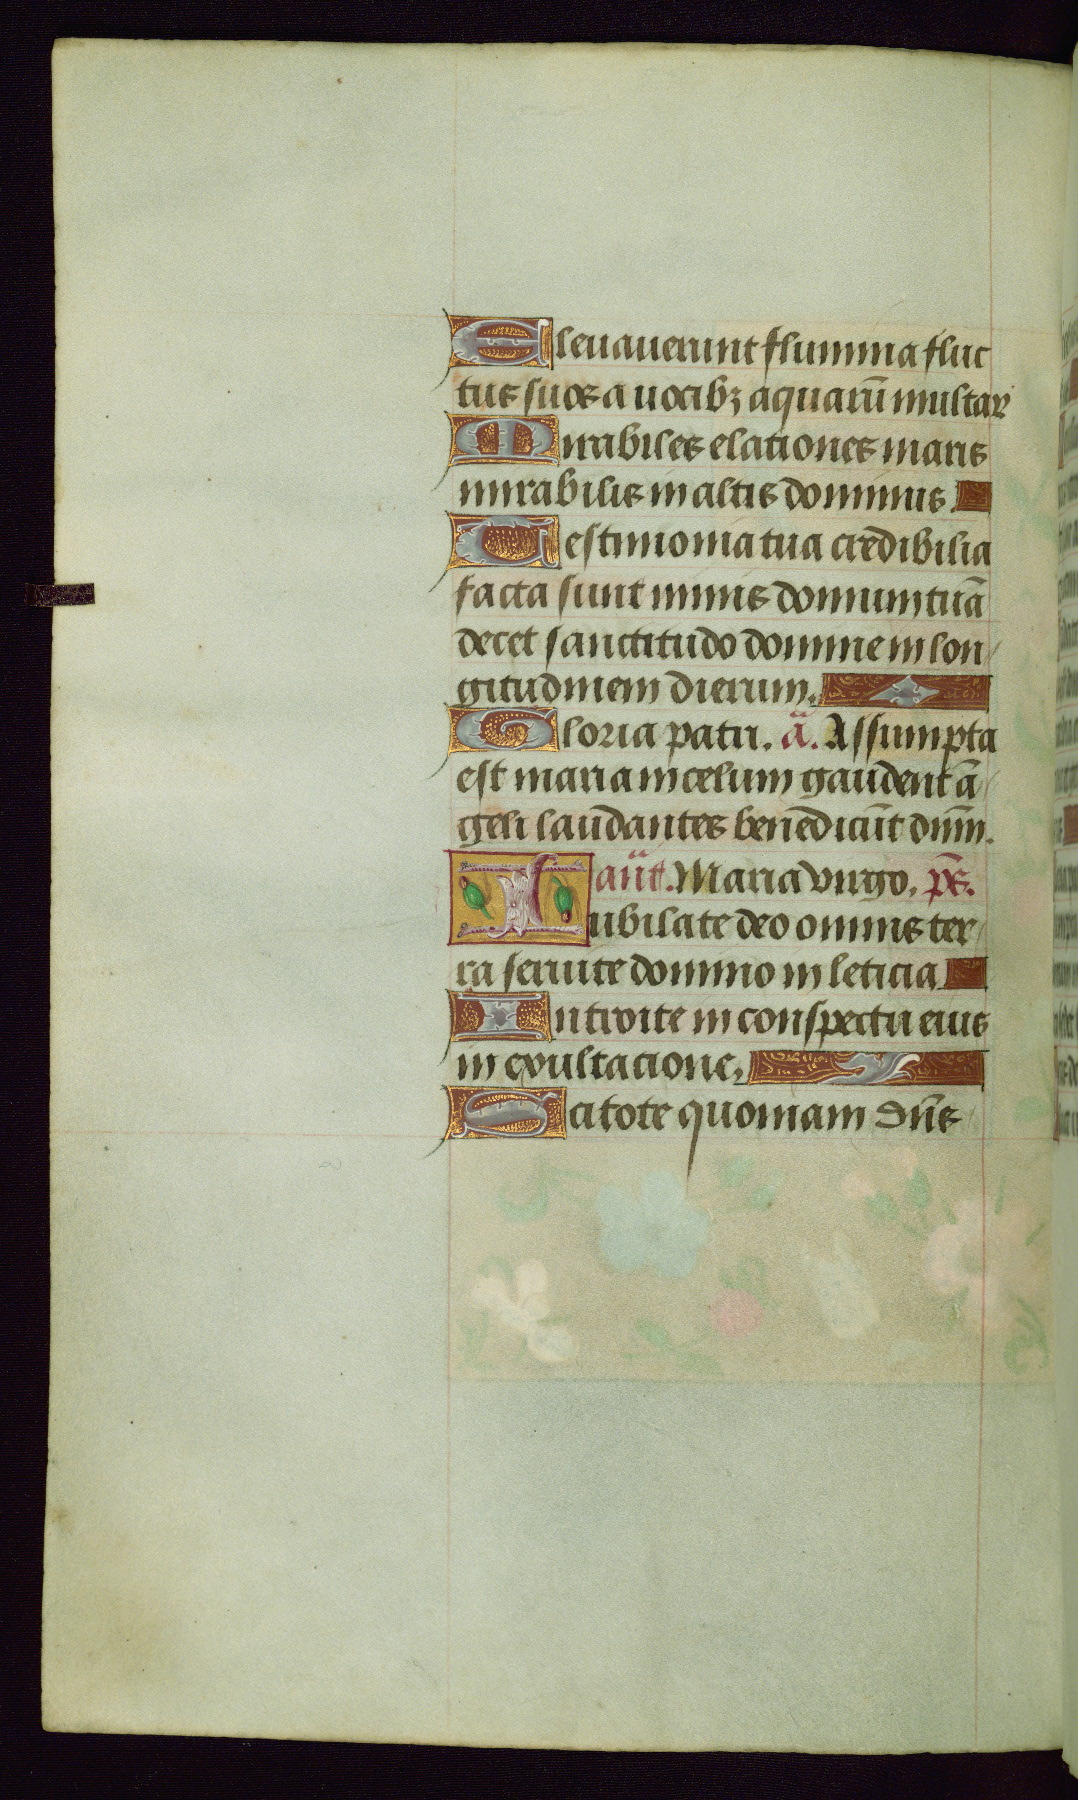 Eleuauerunt flumina fluc
tus suos a uocibꝫ aquarū multar̛
Mirabiles elationes maris
mirabilis in altis dominus.
Testimonia tua credibilia
facta sunt nimis domum tuā
decet sanctitudo domine in lon/
gitudinem dierum.
Gloria patri. ā. Assumpta
est maria in celum gaudent ā/
geli laudantes benedicūt dnm̄.
añt. Maria virgo. ps̄.
Iubilate deo omnis ter/
ra seruite domino in leticia
Introite in conspectu eius
in exultacione.
Scitote quoniam dn̄s